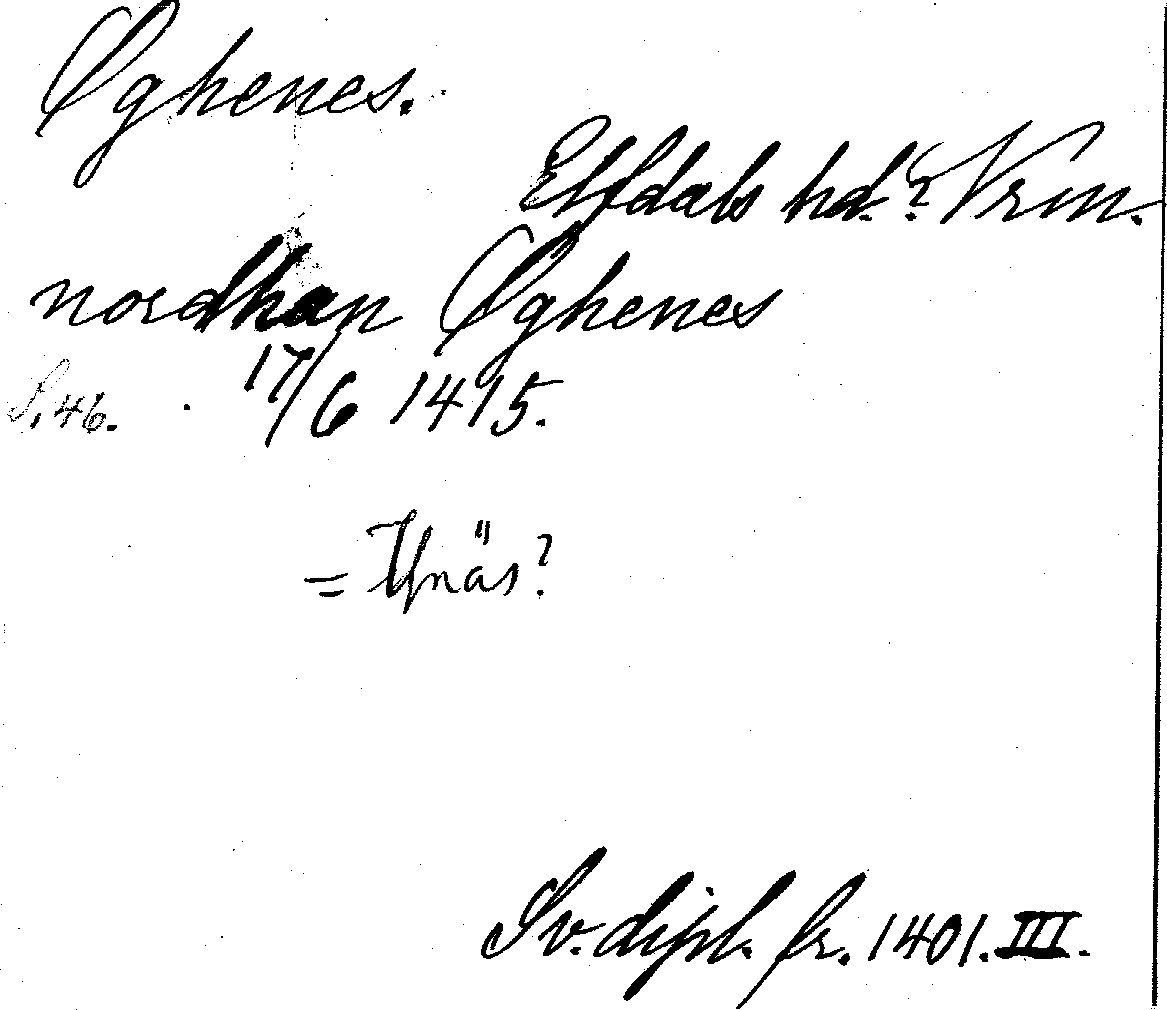 Øghenes.
Elfdals hd.? Vrm.
nordhan Øghenes
S. 46. 17/6 1415.
= Ynäs?
Sv. dipl. fr. 1401. III.